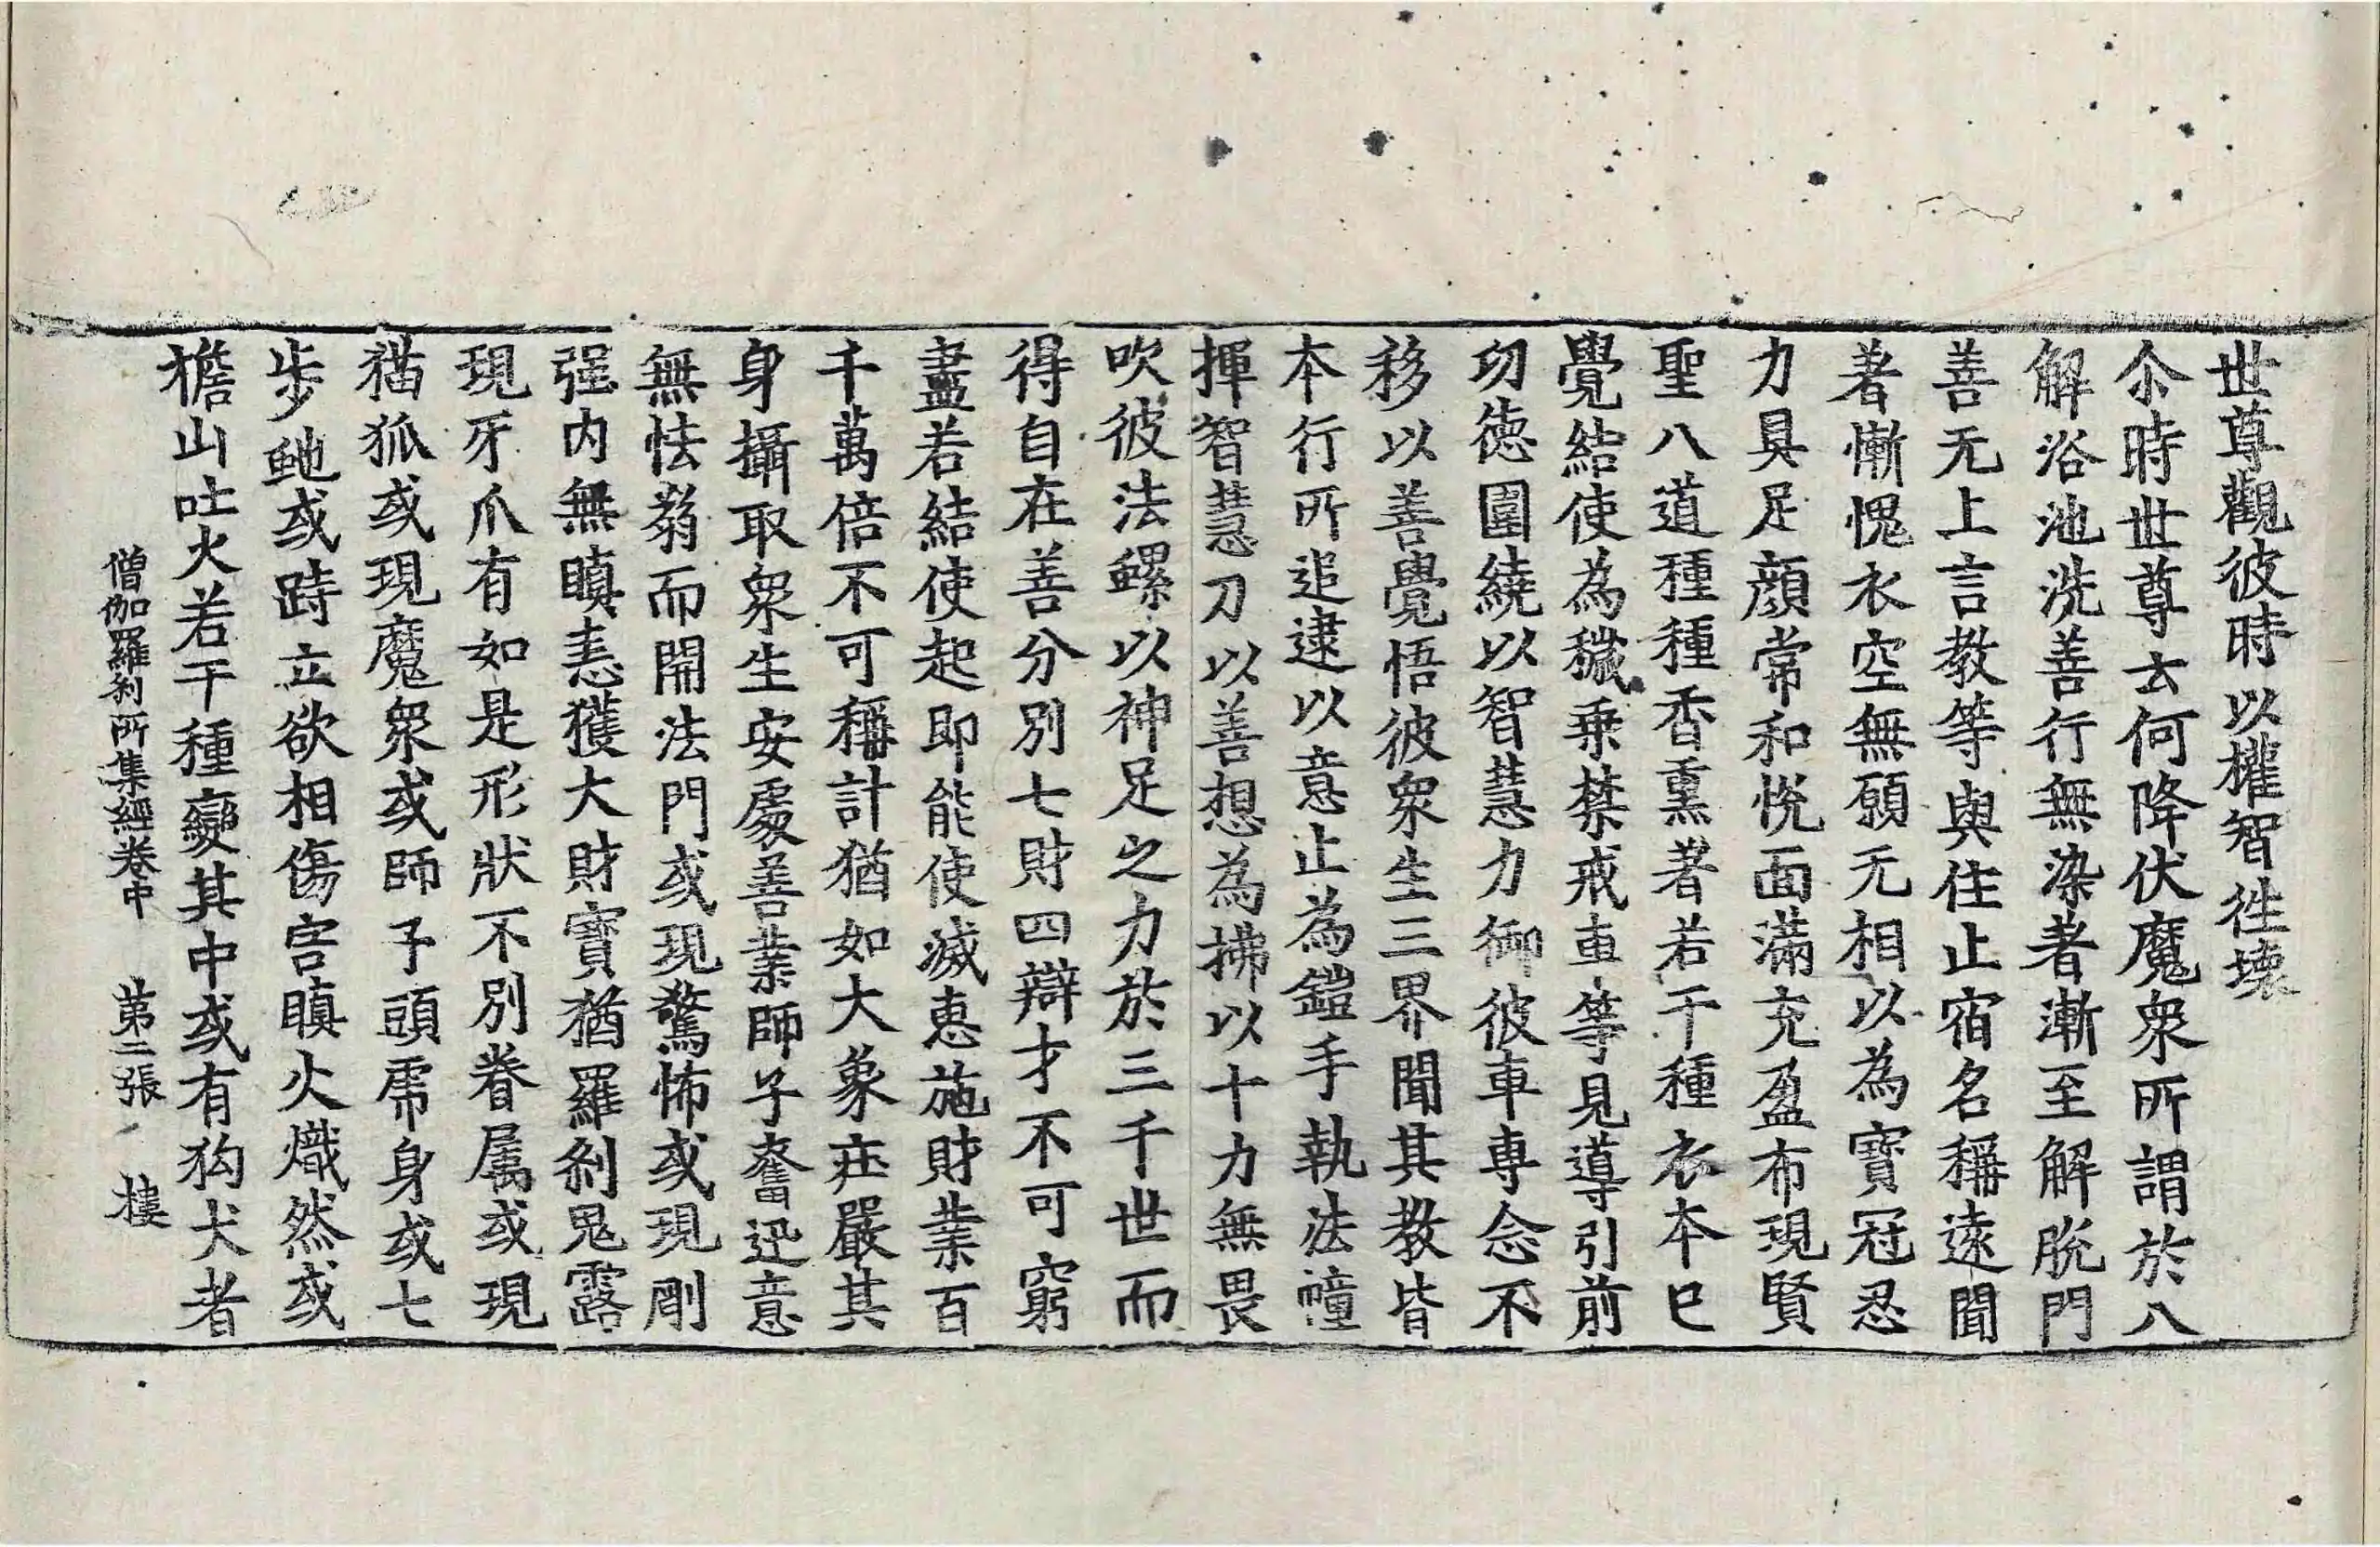 世尊觀彼時以權智徃壞
尒時世尊云何降伏魔衆所謂於八
解浴池洗善行無染著漸至解脫門
善无上言教等與住止宿名稱遠聞
著慚愧衣空無願无相以為寶冠忍
力具足顔常和悅面滿充盈布現賢
聖八道種種香熏著若干種衣本已
覺結使為穢乗禁戒車等見導引前
功德圍繞以智慧力御彼車専念不
移以善覺悟彼衆生三界聞其教皆
本行所追逮以意止為鎧手執法幢
揮智慧刀以善想為拂以十力無畏
吹彼法螺以神足之力於三千世而
得自在善分別七財四辯才不可窮
盡若結使起即能使滅惠施財業百
千萬倍不可稱計猶如大象莊嚴其
身攝取衆生安處善業師子奮迅意
無怯弱而開法門或現驚怖或現剛
强内無瞋恚獲大財寶猶羅刹鬼露
現牙爪有如是形狀不別眷属或現
猫狐或現魔衆或師子頭虎身或七
步虵或跱立欲相傷害瞋火熾然或
檐山吐火若干種變其中或有狗犬者
僧伽羅刹所集經卷中 第二張 樓